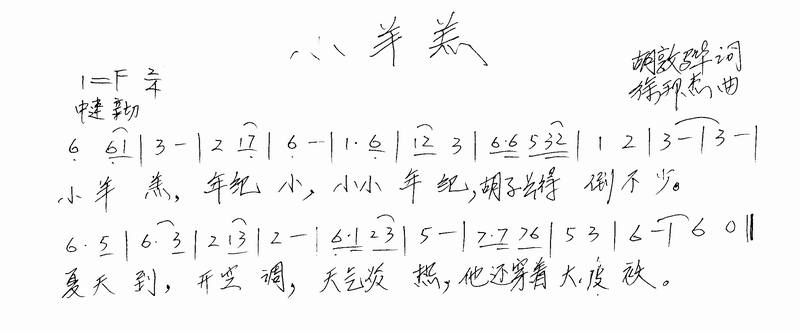 小羊羔
1=F 2/4
中速 亲切
胡敦骅 词
徐邦杰 曲
6 61 | 3 - | 2 17 | 6 - | 1· 6 | 12 3 | 6·6 532 | 1 2 | 3 - | 3 - |
小羊羔,年纪小,小小年纪,胡子长得倒不少。
6· 5 | 6· 3 | 2 13 | 2 - | 6·1 23 | 5 - | 7·7 76 | 5 3 | 6 - | 6 0 ||
夏天到,开空调,天气炎热,他还穿着大皮袄。